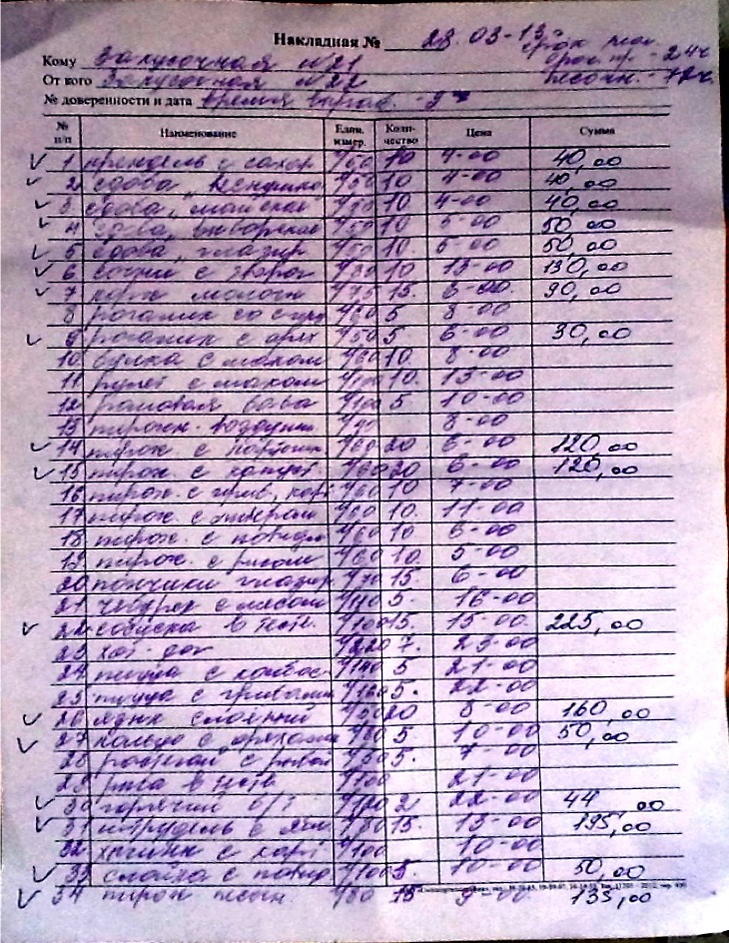 Накладная № 23.03-13г
срок реал.
Кому Закусочная №21 дрож. пр. - 24ч
От кого Закусочная №22 песочн. - 72ч.
№ доверенности и дата время выраб. - 9ч
№ п/п Наименование Един. измер. Коли-чество Цена Сумма
1 крендель с сахар 1/50 10 4-00 40,00
2 сдоба „ 1/50 10 4-00 40,00
3 сдоба „ майская 1/50 10 4-00 40,00
4 сдоба „ выборгская 1/50 10 5-00 50,00
5 сдоба „ глазир 1/50 10. 5-00 50,00
6 сочни с творог 1/80 10 13-00 130,00
7 корж молочн 1/75 15. 6-00. 90,00
8 рогалик со сгущ 1/60 5 8-00
9 рогалик с орех 1/50 5 6-00 30,00
10 булка с маком 1/60 10. 8-00
11 рулет с маком 1/100 10. 13-00
12 ромовая баба 1/100 5 10-00
13 пирожн. воздушн. 1/40 8-00
14 пирож. с картош 1/60 20 6-00 120,00
15 пирож. с капуст 1/60 20 6-00 120,00
16 пирож. с гриб, карт 1/60 10 7-00
17 пирож. с ливером 1/60 10. 11-00
18 пирож. с повидл 1/60 10 5-00
19 пирож. с рисом 1/60 10. 5-00
20 пончики глазир 1/70 15. 6-00
21 чебурек с мясом 1/140 5. 16-00
22 сосиска в тесте. 1/100 15. 15-00 225,00
23 хот-дог 1/220 7. 23-00
24 пицца с колбас. 1/140 5 21-00
25 пицца с грибами 1/160 5. 22-00
26 язык слоёный 1/50 20 8-00 160,00
27 кольцо с орехами 1/80 5. 10-00 50,00
28 с 1/50 5. 7-00
29 рыба в тесте 1/100 21-00
30 горячий б/т 1/180 2 22-00 44,00
31 штрудель с ябл. 1/80 15. 13-00 195,00
32 хычины с карт 1/100 10-00
33 слойка с повид 1/100 5. 10-00 50,00
34 пирож песоч. 1/80 15 9-00. 135,00